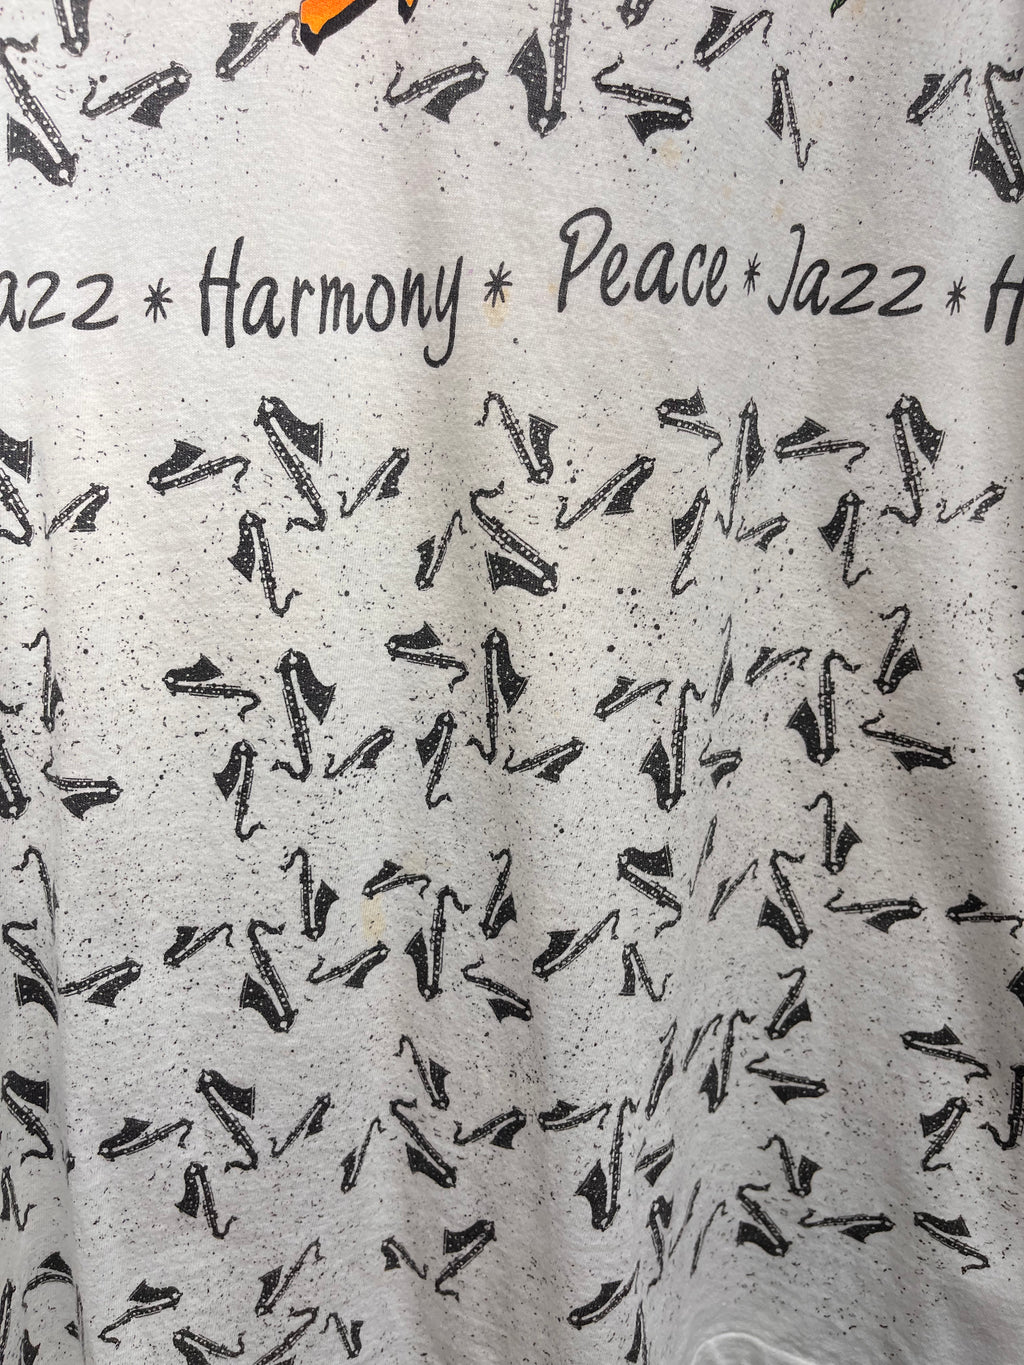 azz * Harmony * Peace * Jazz * H